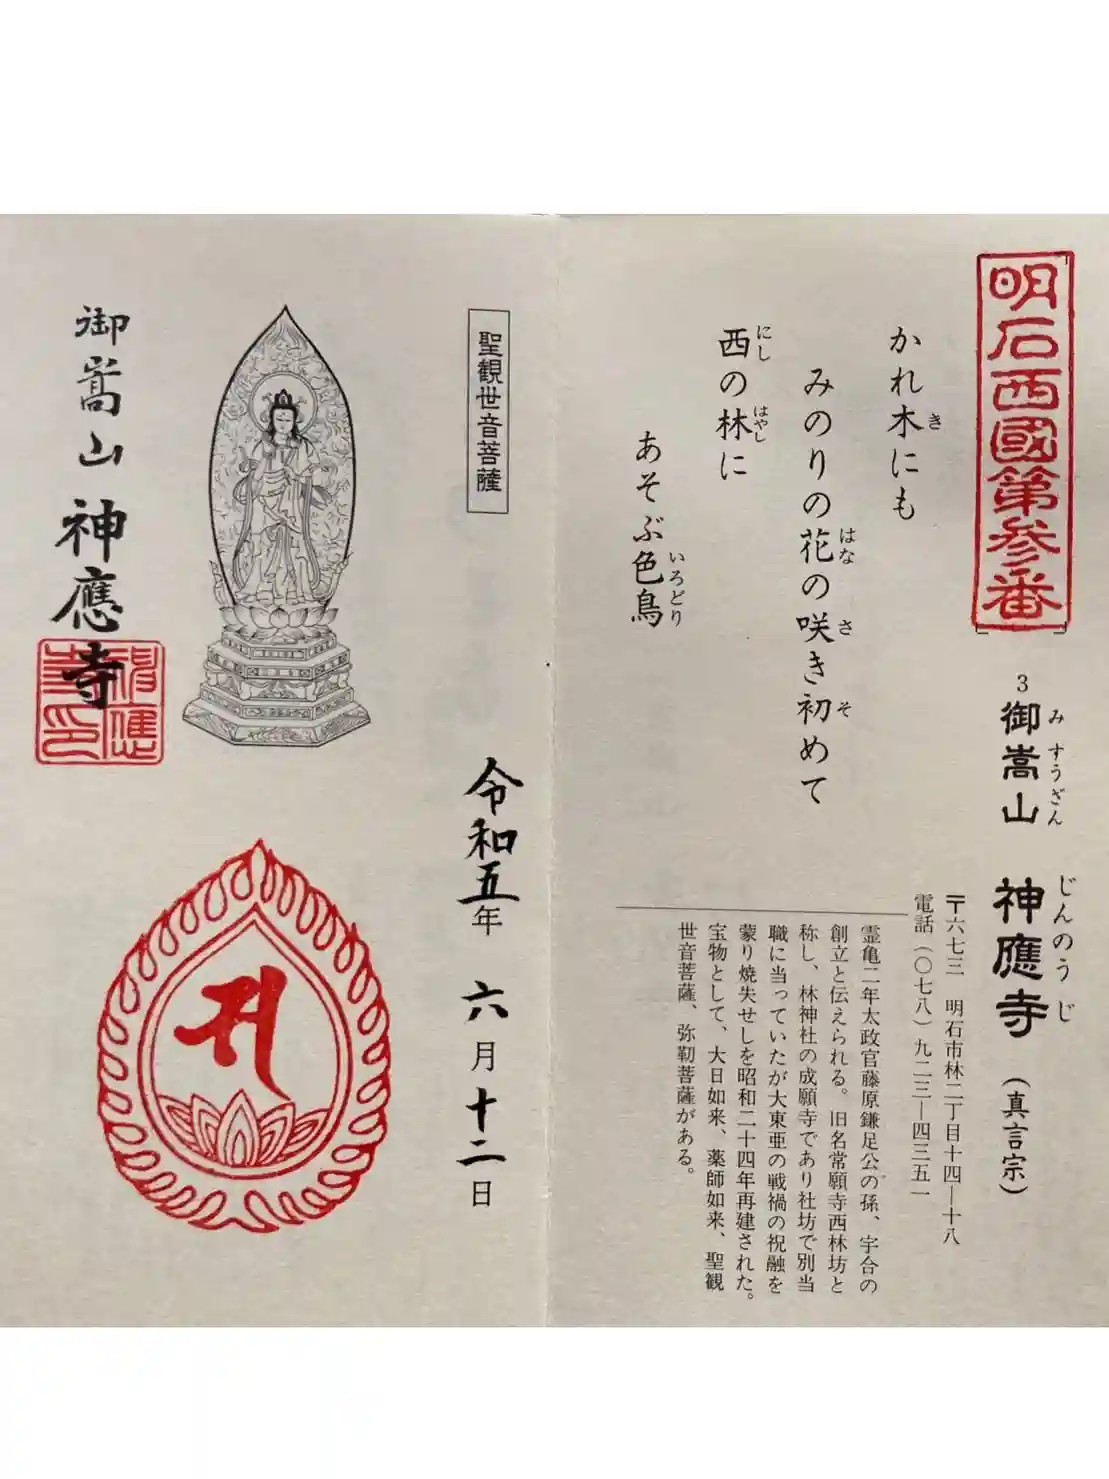 明石西國第参番
3 御嵩山 神應寺（真言宗）
み すうざん じんのうじ
かれ木にも
き
みのりの花の咲き初めて
はな さ そ
西の林に
にし はやし
あそぶ色鳥
いろどり
〒六七三 明石市林二丁目十四―十八
電話（〇七八）九二三―四三五一
霊亀二年太政官藤原鎌足公の孫、宇合の
創立と伝えられる。旧名常願寺西林坊と
称し、林神社の成願寺であり社坊で別当
職に当っていたが大東亜の戦禍の祝融を
蒙り焼失せしを昭和二十四年再建された。
宝物として、大日如来、薬師如来、聖観
世音菩薩、弥勒菩薩がある。
聖観世音菩薩
令和五年 六月十二日
御嵩山 神應寺
神應寺印